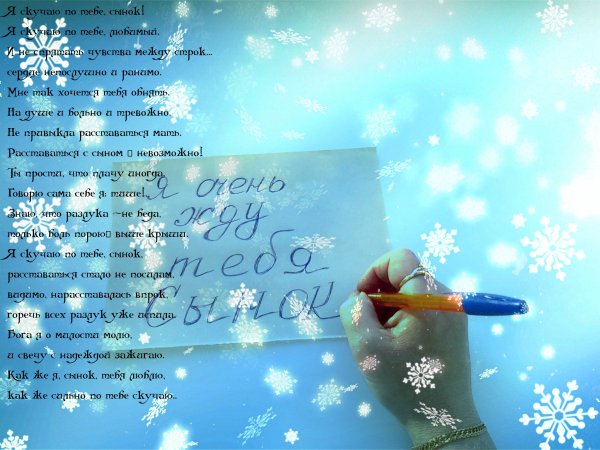 Я скучаю по тебе, сынок!
Я скучаю по тебе, любимый.
И не спрятать чувства между строк...
сердце непослушно и ранимо.
Мне так хочется тебя обнять.
На душе и больно и тревожно.
Не привыкла расставаться мать.
Расставаться с сыном невозможно!
Ты прости, что плачу иногда,
Говорю сама себе я: тише!
Знаю, что разлука ~не беда,
только боль порою выше крыши.
Я скучаю по тебе, сынок,
расставаться стало не посилам,
видимо, нарасставалась впрок,
горечь всех разлук уже испила.
Бога я о милости молю,
и свечу с надеждой зажигаю.
Как же я, сынок, тебя люблю,
как же сильно по тебе скучаю..
Я очень
жду
тебя
Сынок